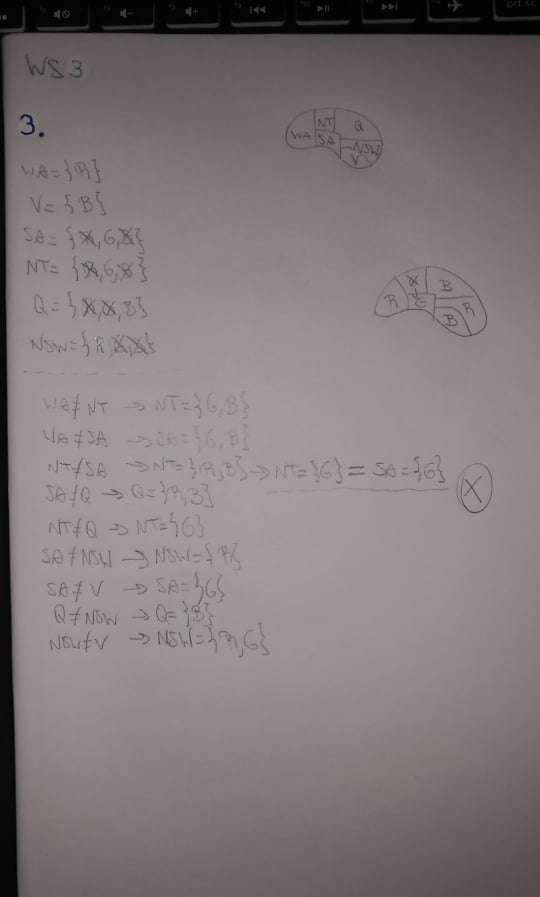 prt sc
WS3
3.
NT Q
WA SA NSW
V
WA={R}
V={B}
SA={R,G,B}
NT={R,G,B}
Q={R,G,B}
NSW={R,G,B}
B
R G R
B
WA≠NT → NT={G,B}
WA≠SA → SA={G,B}
NT≠SA → NT={R,B} → NT={G} = SA={G} X
SA≠Q → Q={R,B}
NT≠Q → NT={G}
SA≠NSW → NSW={R}
SA≠V → SA={G}
Q≠NSW → Q={B}
NSW≠V → NSW={R,G}